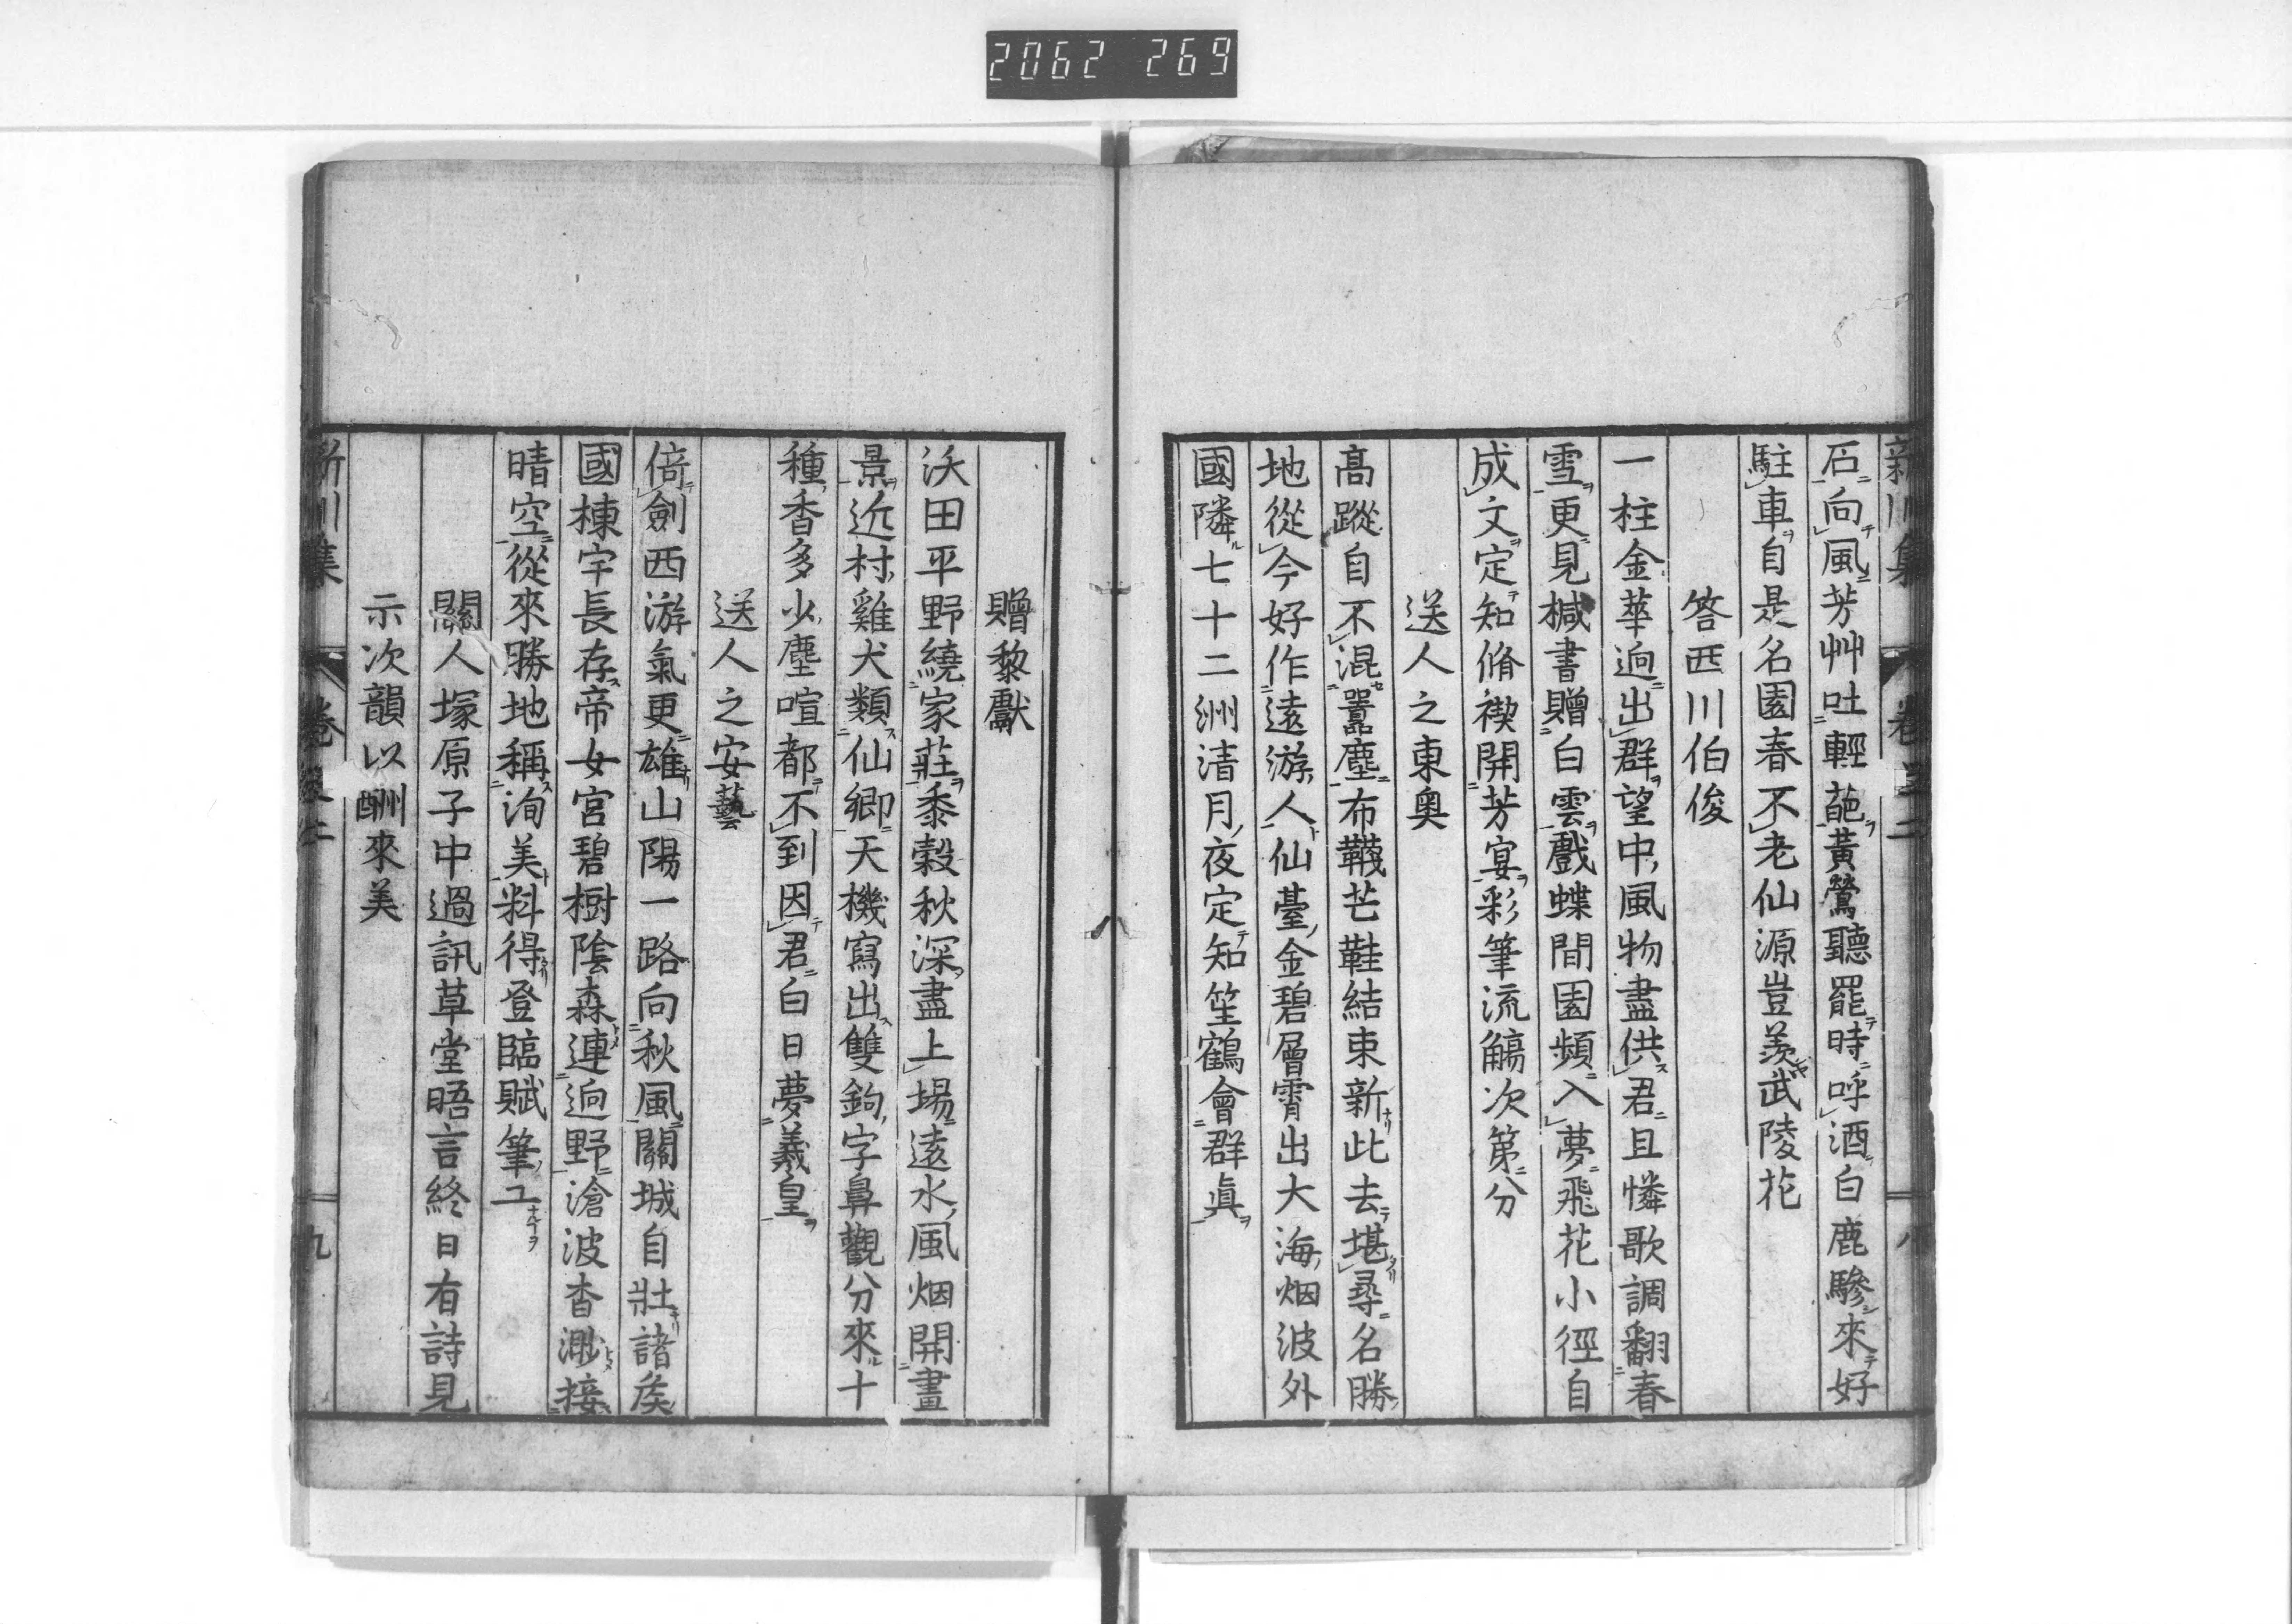 2062 269
新川集 卷之二 八
石向風芳艸吐輕葩黃鶯聽罷時呼酒白鹿驂來好
駐車自是名園春不老仙源豈羨武陵花
答西川伯俊
一柱金華逈出群望中風物盡供君且憐歌調翻春
雪更見椷書贈白雲戲蝶間園頻入夢飛花小徑自
成文定知脩禊開芳宴彩筆流觴次第分
送人之東奥
高蹤自不混囂塵布韈芒鞋結束新此去堪尋名勝
地從今好作遠游人仙臺金碧層霄出大海烟波外
國隣七十二洲清月夜定知笙鶴會群眞
贈黎獻
沃田平野繞家莊黍穀秋深盡上場遠水風烟開畫
景近村雞犬類仙鄉天機寫出雙鉤字鼻觀分來十
種香多少塵喧都不到因君白日夢羲皇
送人之安藝
倚劍西游氣更雄山陽一路向秋風關城自壯諸矦
國棟宇長存帝女宮碧樹陰森連逈野滄波杳渺接
晴空從來勝地稱洵美料得登臨賦筆工
關人塚原子中過訊草堂晤言終日有詩見
示次韻以酬來美
新川集 卷之二 九